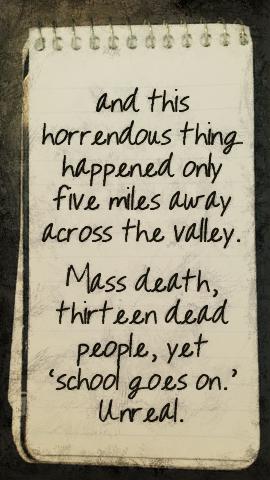 and this
horrendous thing
happened only
five miles away
across the valley.
Mass death,
thirteen dead
people, yet
'school goes on.'
Unreal.